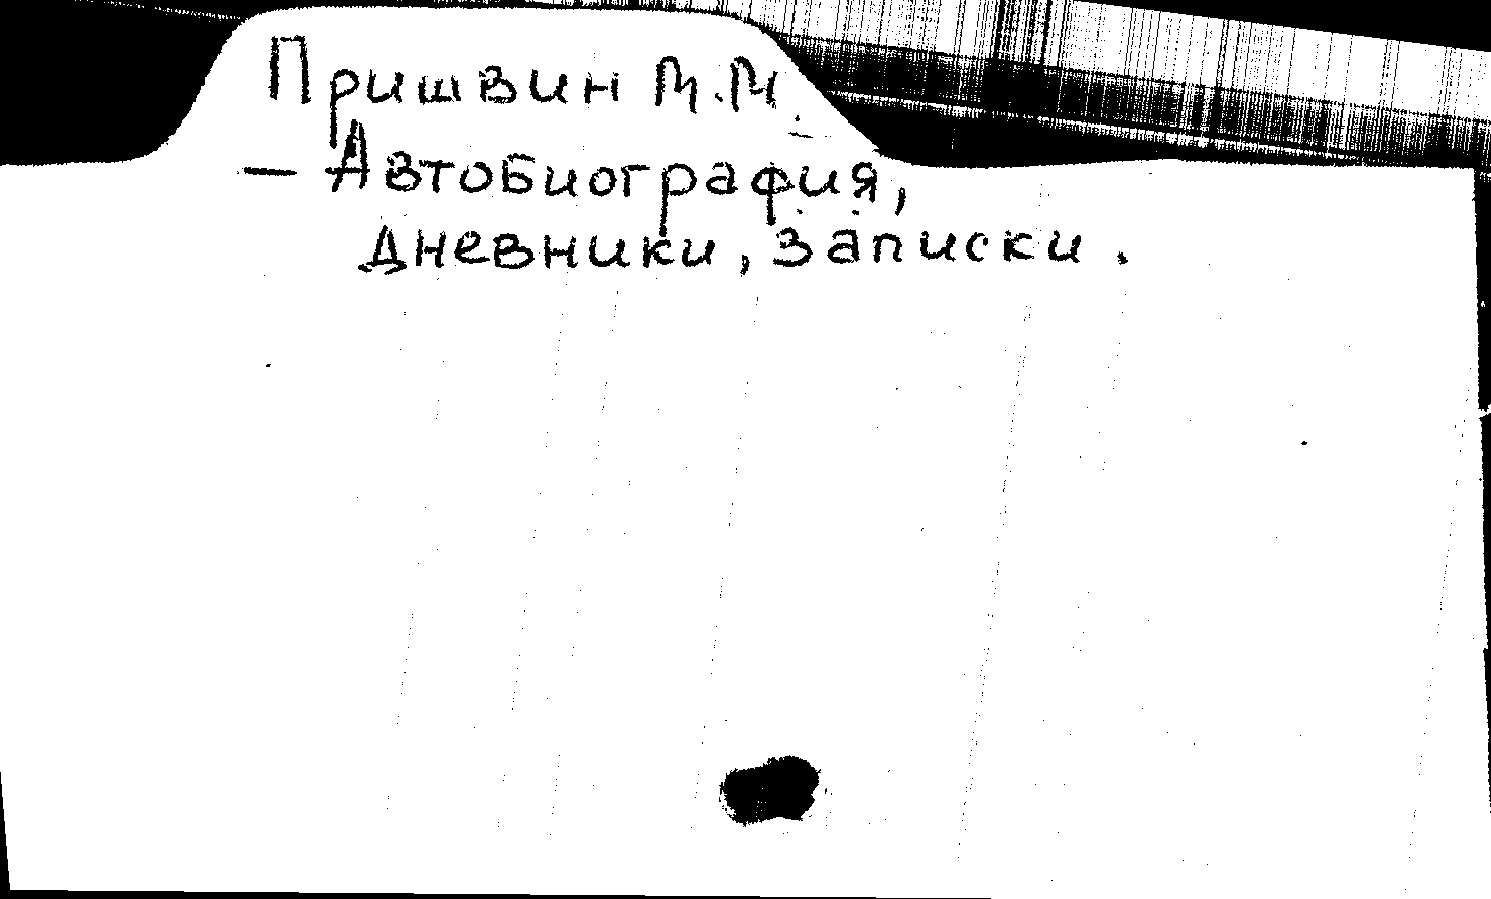 Пришвин М.М.
— Автобиография,
дневники, записки.